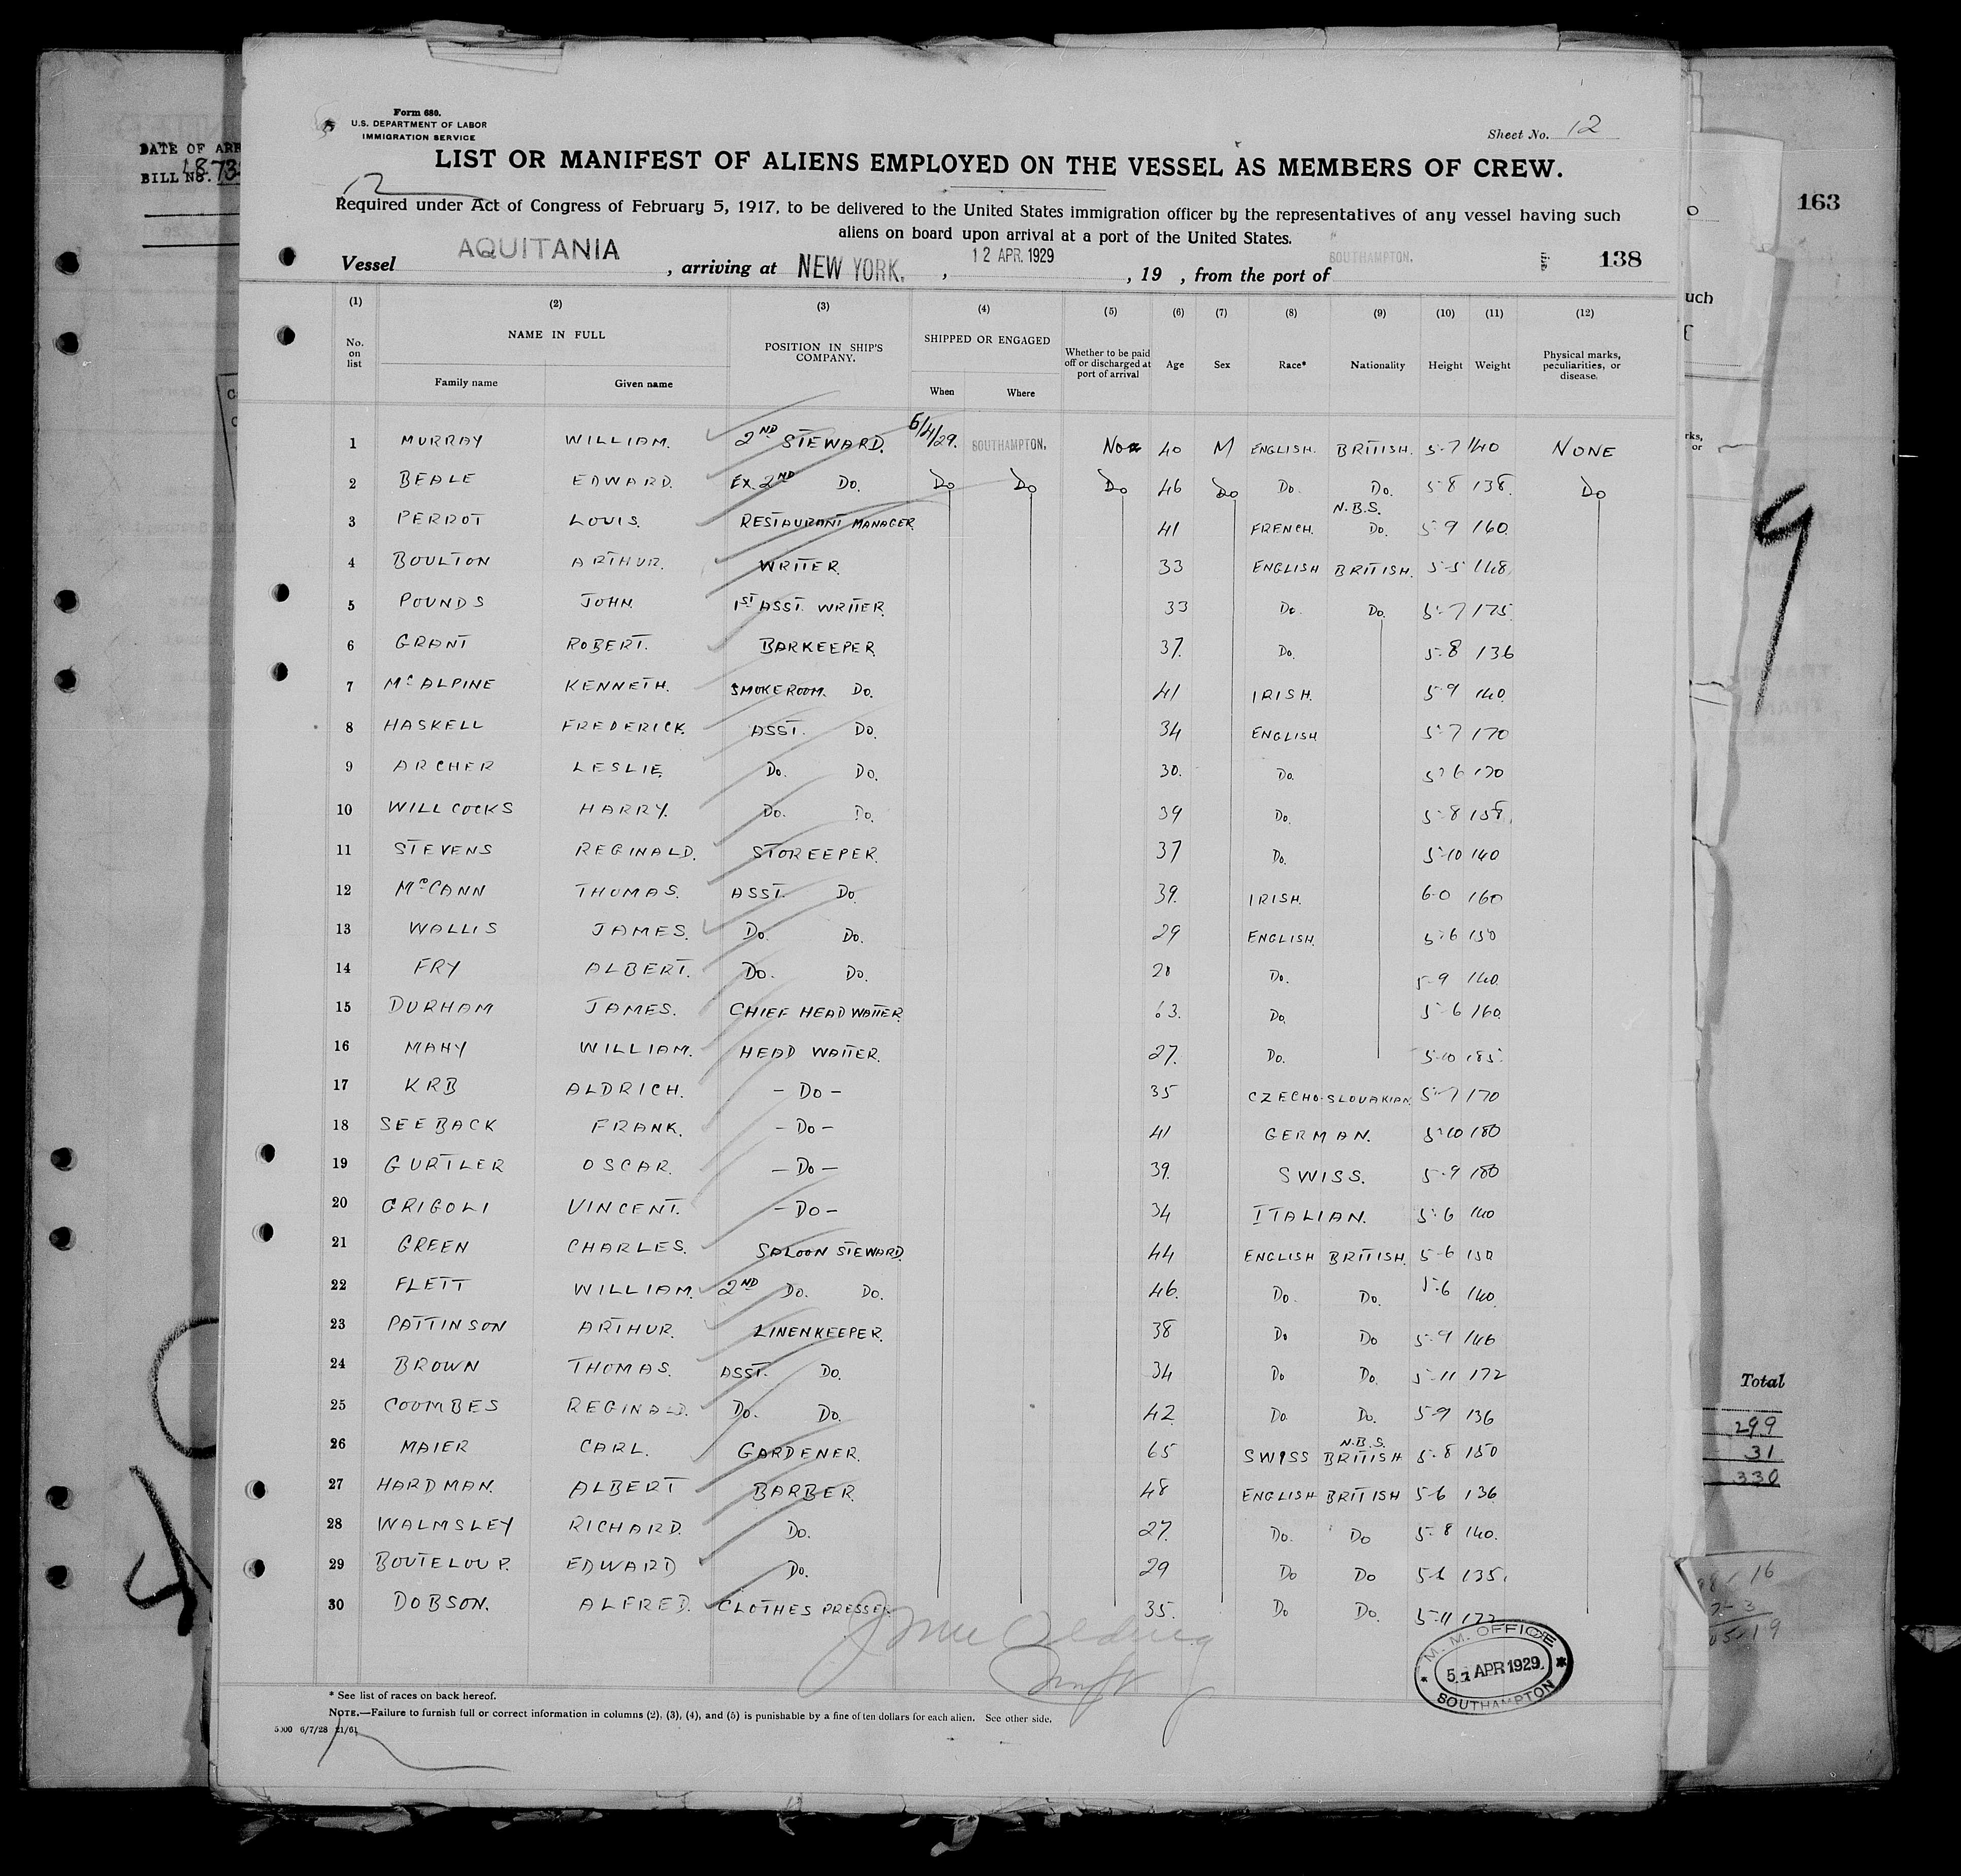 DATE OF ARR
BILL NO. 1873
Form 680.
U.S. DEPARTMENT OF LABOR
IMMIGRATION SERVICE
Sheet No. 12
LIST OR MANIFEST OF ALIENS EMPLOYED ON THE VESSEL AS MEMBERS OF CREW.
Required under Act of Congress of February 5, 1917, to be delivered to the United States immigration officer by the representatives of any vessel having such
aliens on board upon arrival at a port of the United States.
Vessel AQUITANIA, arriving at NEW YORK, 12 APR. 1929, 19 , from the port of SOUTHAMPTON. 138
163
(1) (2) (3) (4) (5) (6) (7) (8) (9) (10) (11) (12)
No. on list NAME IN FULL POSITION IN SHIP'S COMPANY. SHIPPED OR ENGAGED Whether to be paid off or discharged at port of arrival Age Sex Race* Nationality Height Weight Physical marks, peculiarities, or disease.
Family name Given name When Where
1 MURRAY WILLIAM. 2ND STEWARD. 6/4/29. SOUTHAMPTON. No 40 M ENGLISH. BRITISH. 5-7 140 NONE
2 BEALE EDWARD. EX. 2ND Do. Do Do Do 46 Do Do. Do. 5-8 138. Do
3 PERROT LOUIS. RESTAURANT MANAGER 41 FRENCH. N.B.S. Do. 5-9 160.
4 BOULTON ARTHUR. WRITER. 33 ENGLISH BRITISH. 5-5 148
5 POUNDS JOHN. 1ST ASST. WRITER. 33 Do. Do. 5-7 175.
6 GRANT ROBERT. BARKEEPER. 37. Do. 5-8 136
7 McALPINE KENNETH. SMOKEROOM. Do. 41 IRISH. 5-9 140.
8 HASKELL FREDERICK. ASST. Do. 34 ENGLISH 5-7 170
9 ARCHER LESLIE. Do. Do. 30. Do. 5-6 170
10 WILLCOCKS HARRY. Do. Do. 39 Do. 5-8 158.
11 STEVENS REGINALD. STOREEPER. 37 Do. 5-10 140
12 McCANN THOMAS. ASST. Do. 39. IRISH. 6-0 160
13 WALLIS JAMES. Do. Do. 29 ENGLISH. 5-6 150
14 FRY ALBERT. Do. Do. Do. 5-9 140.
15 DURHAM JAMES. CHIEF HEAD WAITER. 63. Do. 5-6 160.
16 MAHY WILLIAM. HEAD WAITER. 27. Do. 5-10 185.
17 KRB ALDRICH. - Do - 35 CZECHO-SLOVAKIAN. 5-7 170
18 SEEBACK FRANK. - Do - 41 GERMAN. 5-10 180
19 GURTLER OSCAR. - Do - 39. SWISS. 5-9 180
20 GRIGOLI VINCENT. - Do - 34 ITALIAN. 5-6 140
21 GREEN CHARLES. SALOON STEWARD. 44 ENGLISH BRITISH. 5-6 150
22 FLETT WILLIAM. 2ND Do. Do. 46. Do. Do. 5-6 140.
23 PATTINSON ARTHUR. LINENKEEPER. 38 Do Do 5-9 146
24 BROWN THOMAS. ASST. Do. 34 Do Do. 5-11 172
25 COOMBES REGINALD. Do. Do. 42 Do. Do. 5-9 136
26 MAIER CARL. GARDENER. 65 SWISS N.B.S. BRITISH 5-8 150
27 HARDMAN. ALBERT BARBER. 48 ENGLISH BRITISH 5-6 136
28 WALMSLEY RICHARD. Do. 27. Do. Do 5-8 140.
29 BOUTELOUP. EDWARD Do. 29 Do Do 5-6 135.
30 DOBSON. ALFRED. CLOTHES PRESSER 35. Do Do. 5-11 172
M. M. OFFICE
5 APR 1929
SOUTHAMPTON
* See list of races on back hereof.
NOTE.—Failure to furnish full or correct information in columns (2), (3), (4), and (5) is punishable by a fine of ten dollars for each alien. See other side.
5000 6/7/28 21/61
uch
rks,
or
Total
299
31
330